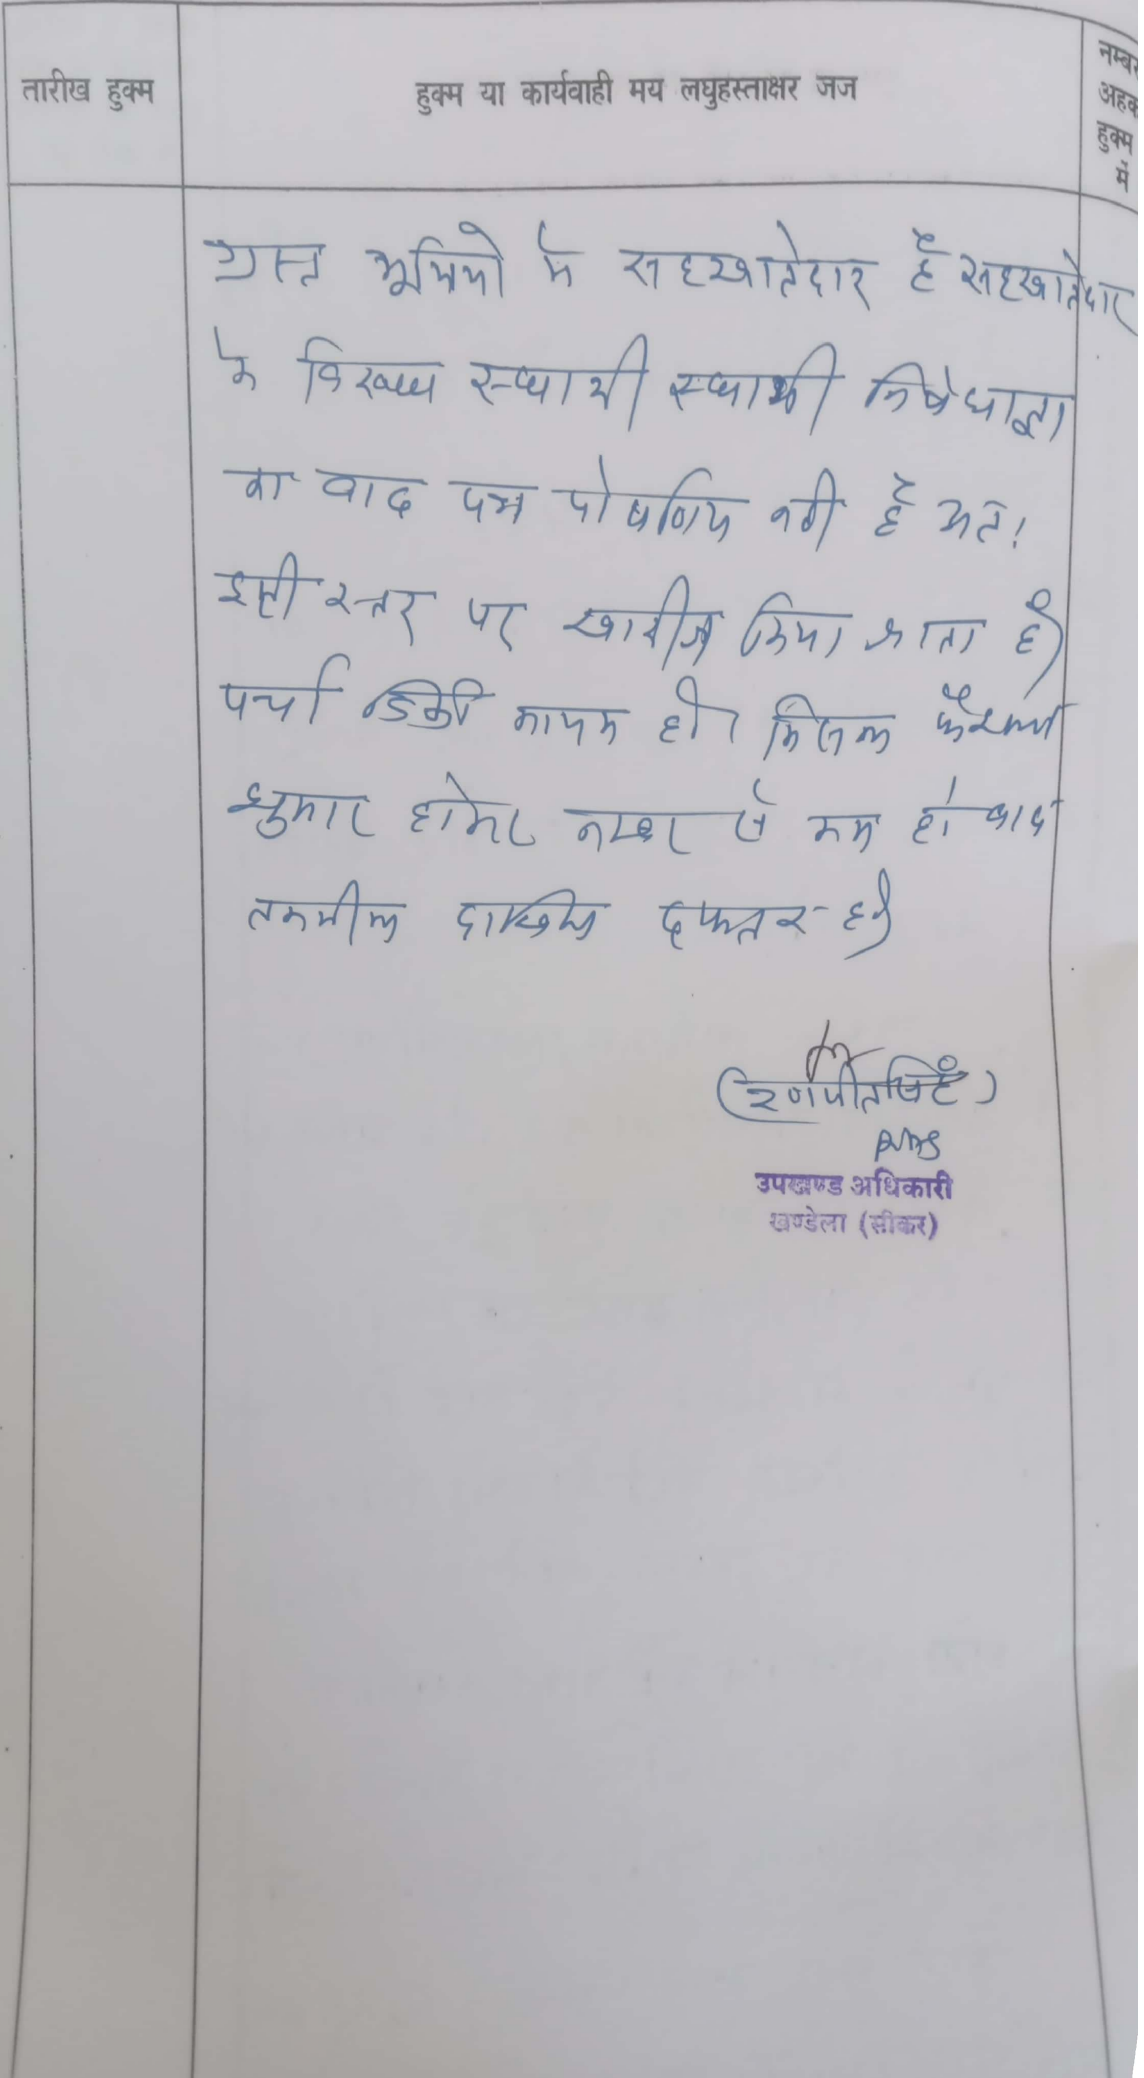 तारीख हुक्म
हुक्म या कार्यवाही मय लघुहस्ताक्षर जज
नम्बर
अहक
हुक्म
में
ग्रस्त भूमियो के सहखातेदार है सहखातेदार
के विरुध्ध स्थायी स्थायी निषेधाज्ञा
का वाद पत्र पोषणिय नही है अतः
इसी स्तर पर खारीज किया जाता है।
पर्चा डिक्री कायम हो। मिसल फैसला
शुमार होकर नम्बर से कम हो बाद
तकमील दाखिल दफ्तर हो।
(रणजीतसिंह)
RAS
उपखण्ड अधिकारी
खण्डेला (सीकर)